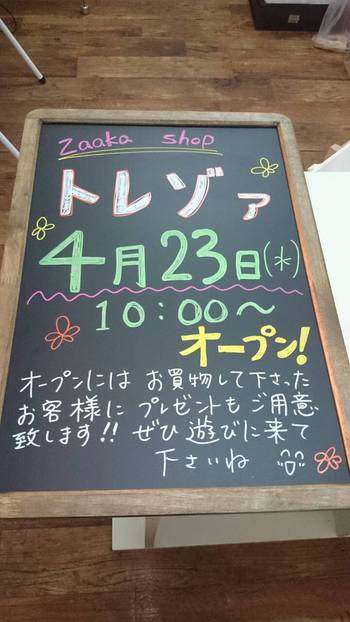 zaaka shop
トレゾァ
4月23日(水)
10:00〜
オープン!
オープンには お買物して下さった
お客様に プレゼントも ご用意
致します!! ぜひ 遊びに来て
下さいね